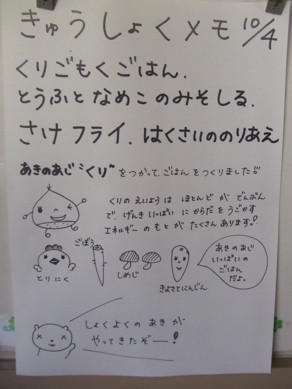 きゅうしょくメモ 10/4
くりごもくごはん.
とうふとなめこのみそしる.
さけフライ. はくさいののりあえ
あきのあじ"くり"をつかって、ごはんをつくりました!!
くりのえいようはほとんどがでんぷん
で、げんきいっぱいにからだをうごかす
エネルギーのもとがたくさんあります。!
とりにく
ごぼう
しめじ
きよさとにんじん
あきのあじ
いっぱいの
ごはん
だよ。
しょくよくのあきが
やってきたぞー!